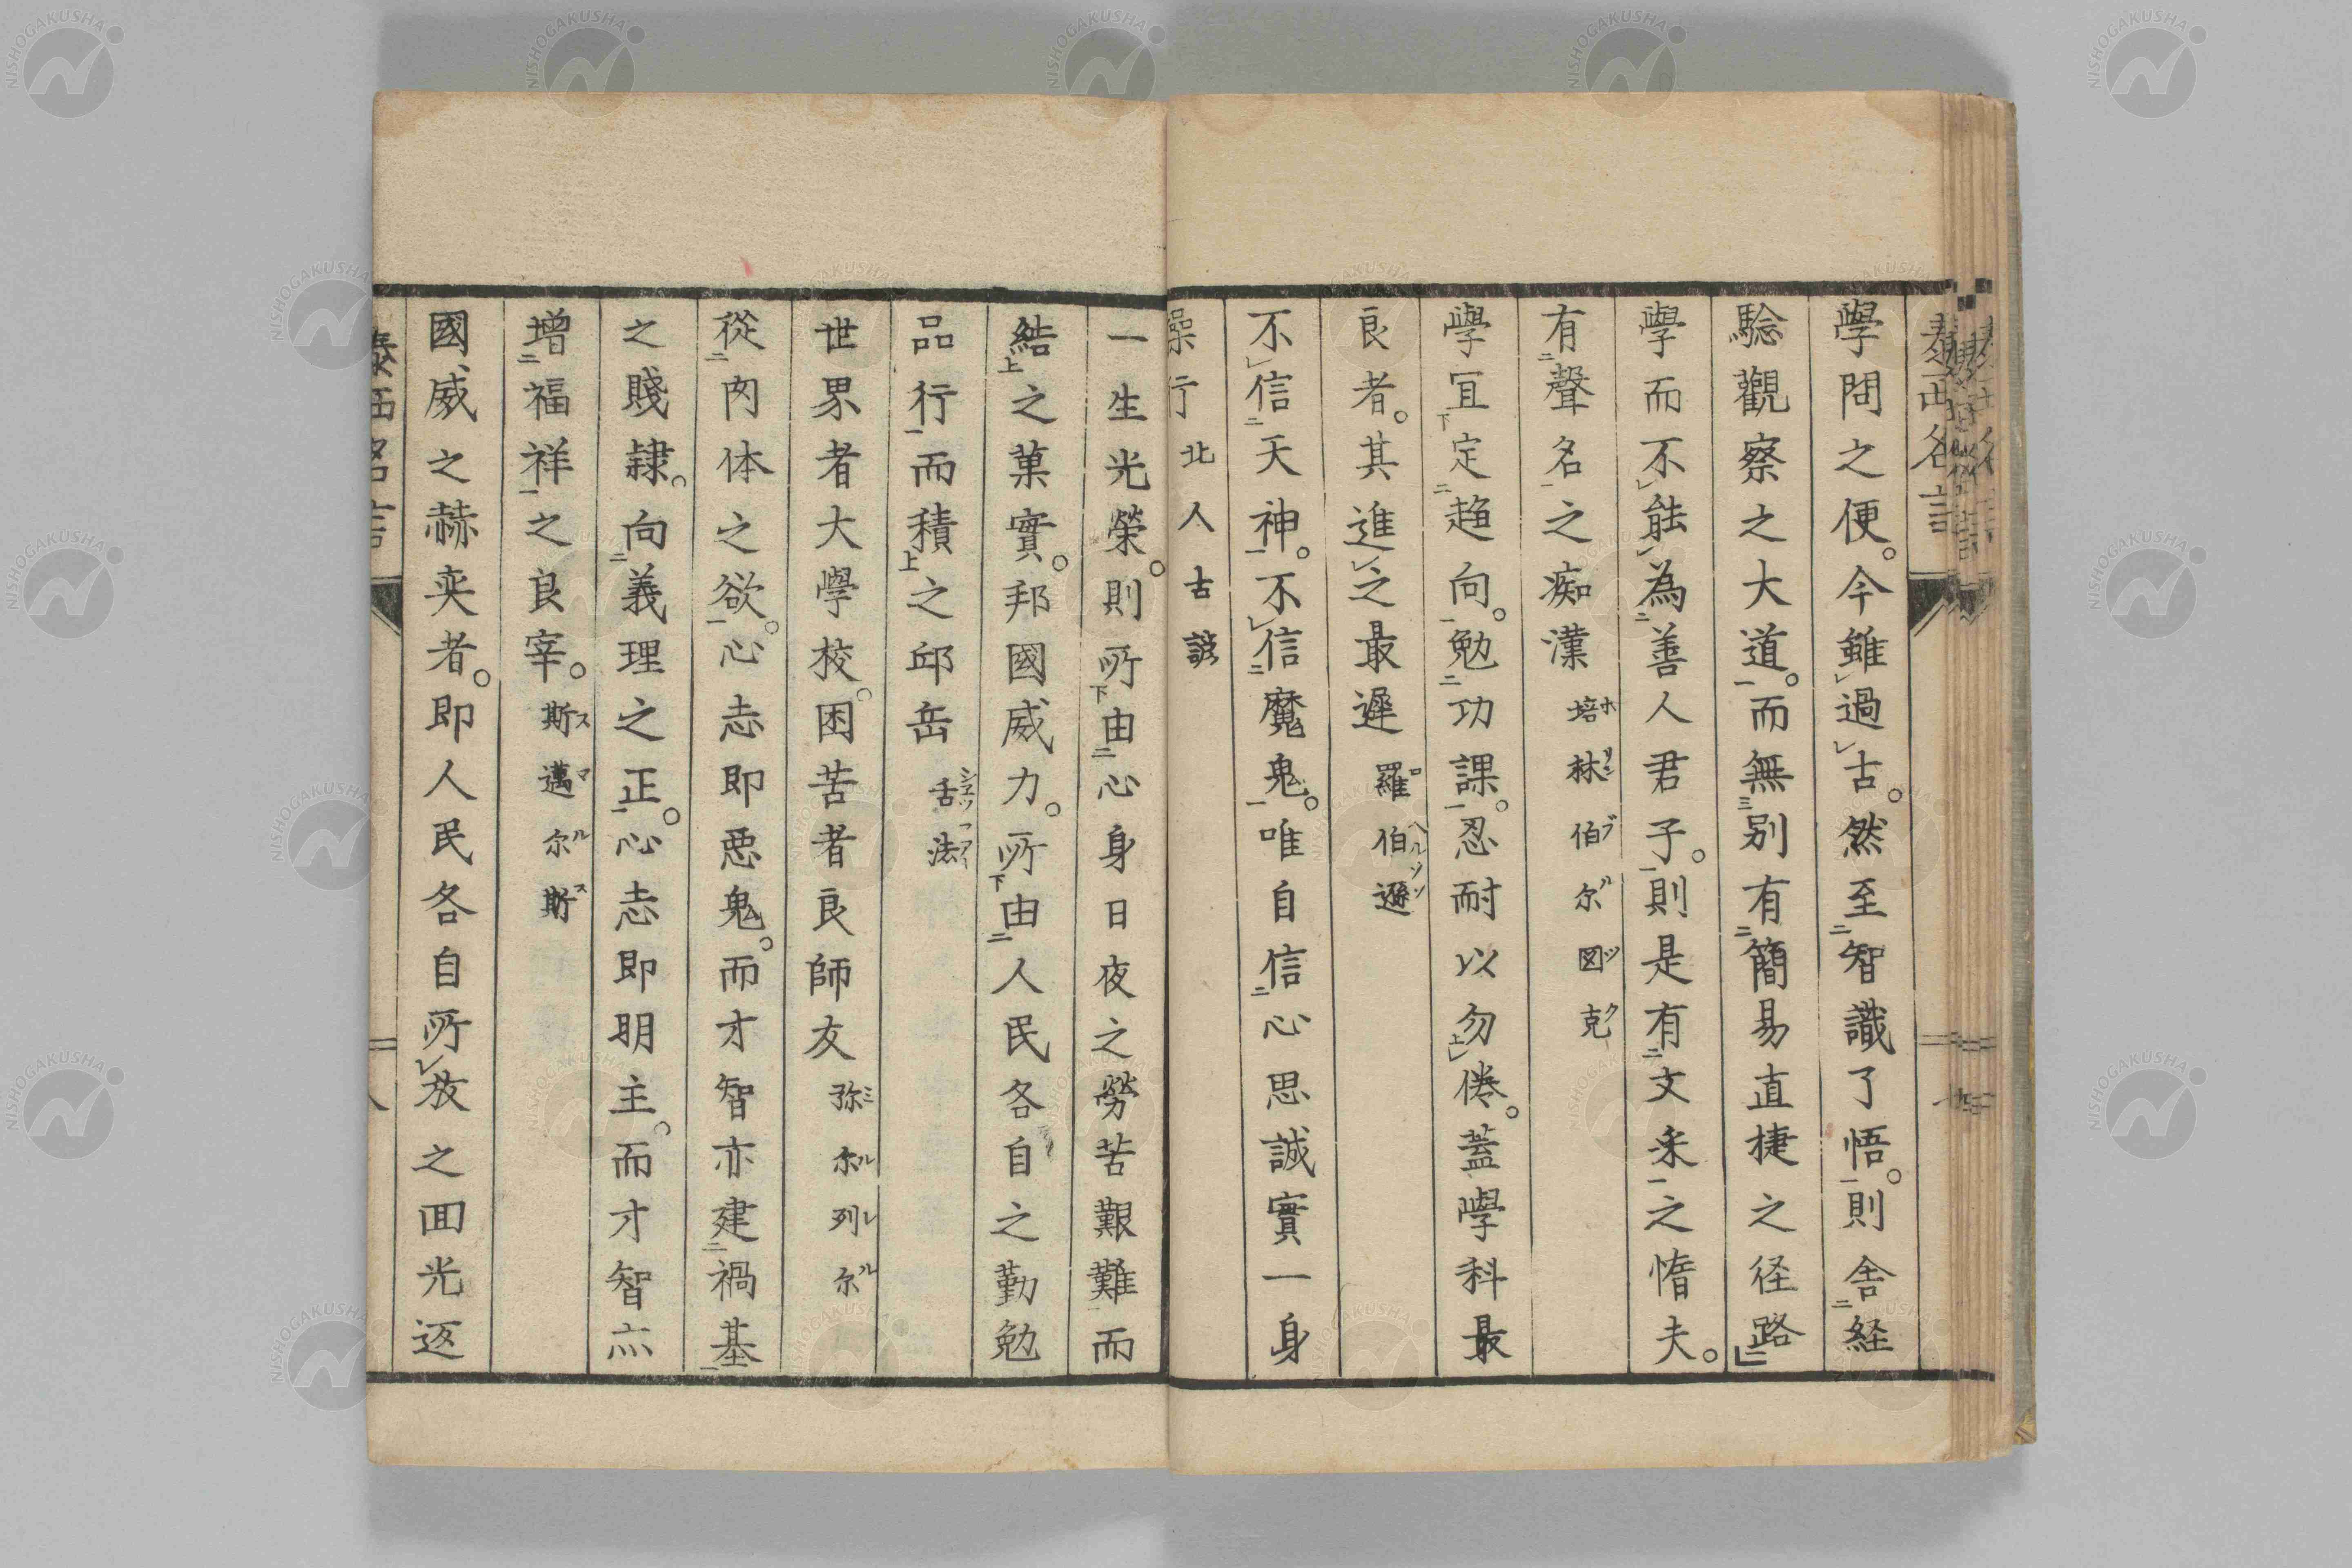 學問之便。今雖過古。然至智識了悟。則舍経
驗觀察之大道。而無別有簡易直捷之径路
學而不能為善人君子。則是有文采之惰夫。
有聲名之痴漢 培林伯尓図克
學宜定趋向。勉功課。忍耐以勿倦。蓋學科最
良者。其進之最遲 羅伯遜
不信天神。不信魔鬼。唯自信心思誠實一身
操行 北人古諺
一生光榮。則所由心身日夜之勞苦艱難而
結之菓實。邦國威力。所由人民各自之勤勉
品行而積之邱岳 舌法
世界者大學校。困苦者良師友 弥尓列尓
從内体之欲。心志即惡鬼。而才智亦建禍基
之賤隷。向義理之正。心志即明主。而才智亦
增福祥之良宰。斯邁尓斯
國威之赫奕者。即人民各自所放之回光返
泰西名言
NISHOGAKUSHA